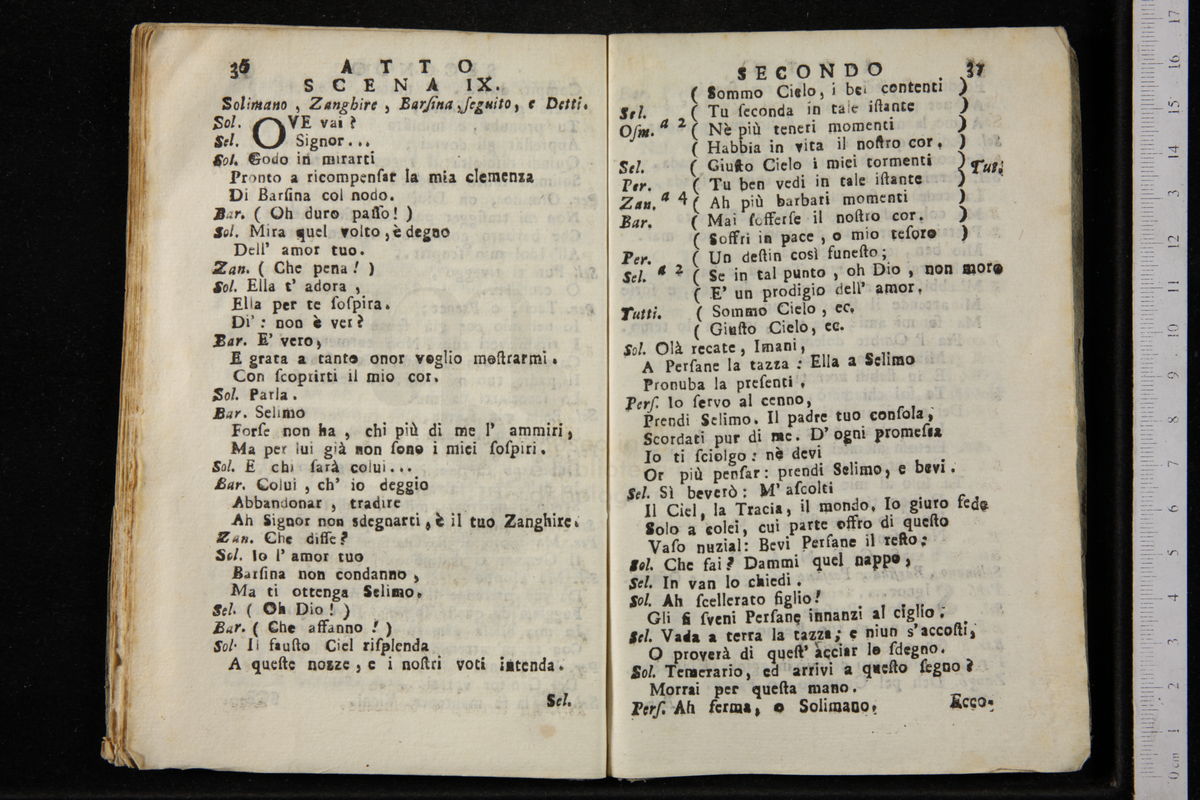 36 ATTO
SCENA IX.
Solimano, Zanghire, Barſina, ſeguito, e Detti.
Sol. OVE vai?
Sel. Signor...
Sol. Godo in mirarti
Pronto a ricompenſar la mia clemenza
Di Barſina col nodo.
Bar. ( Oh duro paſſo! )
Sol. Mira quel volto, è degno
Dell' amor tuo.
Zan. ( Che pena! )
Sol. Ella t' adora,
Ella per te ſoſpira.
Di': non è ver?
Bar. E' vero,
E grata a tanto onor voglio moſtrarmi.
Con ſcoprirti il mio cor.
Sol. Parla.
Bar. Selimo
Forſe non ha, chi più di me l' ammiri,
Ma per lui già non ſono i miei ſoſpiri.
Sol. E chi ſarà colui...
Bar. Colui, ch' io deggio
Abbandonar, tradire
Ah Signor non sdegnarti, è il tuo Zanghire.
Zan. Che diſſe?
Sol. Io l' amor tuo
Barſina non condanno,
Ma ti ottenga Selimo.
Sel. ( Oh Dio! )
Bar. ( Che affanno! )
Sol. Il fauſto Ciel riſplenda
A queſte nozze, e i noſtri voti intenda.
Sel.
SECONDO 37
( Sommo Cielo, i bei contenti )
Sel. ( Tu ſeconda in tale iſtante )
Oſm. a 2 ( Nè più teneri momenti )
( Habbia in vita il noſtro cor. )
Sel. ( Giuſto Cielo i miei tormenti ) Tut.
Per. ( Tu ben vedi in tale iſtante )
Zan. a 4 ( Ah più barbari momenti )
Bar. ( Mai ſofferſe il noſtro cor. )
( Soffri in pace, o mio teſoro )
Per. ( Un deſtin così funeſto;
Sel. a 2 ( Se in tal punto, oh Dio, non moro
( E' un prodigio dell' amor.
Tutti. ( Sommo Cielo, ec.
( Giuſto Cielo, ec.
Sol. Olà recate, Imani,
A Perſane la tazza: Ella a Selimo
Pronuba la preſenti.
Perſ. Io ſervo al cenno,
Prendi Selimo. Il padre tuo conſola,
Scordati pur di me. D' ogni promeſſa
Io ti ſciolgo: nè devi
Or più penſar: prendi Selimo, e bevi.
Sel. Sì beverò: M' aſcolti
Il Ciel, la Tracia, il mondo. Io giuro fede
Solo a colei, cui parte offro di queſto
Vaſo nuzial: Bevi Perſane il reſto:
Sol. Che fai? Dammi quel nappo,
Sel. In van lo chiedi.
Sol. Ah ſcellerato figlio!
Gli ſi ſveni Perſane innanzi al ciglio.
Sel. Vada a terra la tazza; e niun s' accoſti,
O proverà di queſt' acciar lo ſdegno.
Sol. Temerario, ed arrivi a queſto ſegno?
Morrai per queſta mano.
Perſ. Ah ferma, o Solimano.
Ecco.
0 cm 1 2 3 4 5 6 7 8 9 10 11 12 13 14 15 16 17